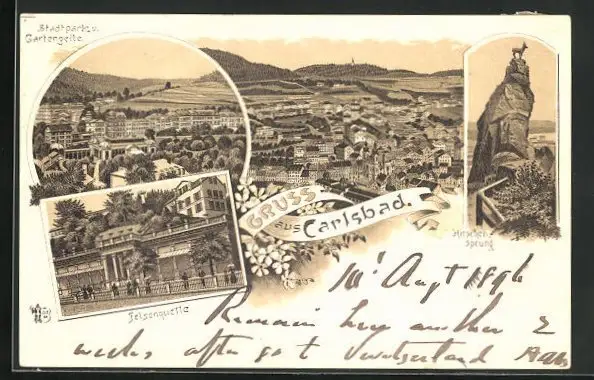 Stadtpark u.
Gartenzeile.
GRUSS
aus Carlsbad.
Hirschen-
sprung
Felsenquelle
10t Augt 1896
Remain here another 2
weeks after go t Switserland